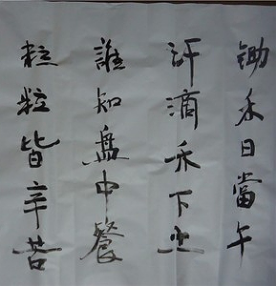 锄禾日當午
汗滴禾下土
誰知盘中餐
粒粒皆辛苦